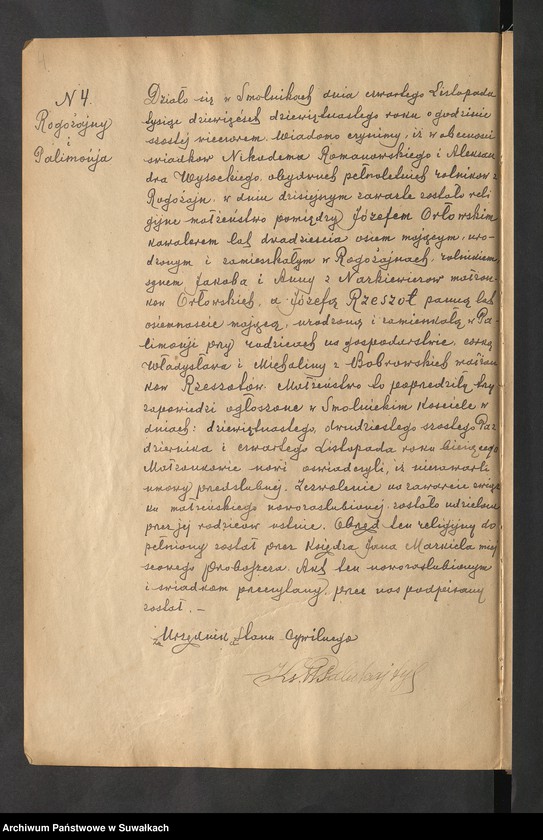 N 4.
Rogożajny
i
Palimonja
Działo się w Smolnikach dnia czwartego Listopada
tysiąc dziewięćset dziewiętnastego roku o godzinie
szóstej wieczorem. Wiadomo czynimy, iż w obecności
świadków Nikodema Romanowskiego i Aleksan
dra Wysockiego, obydwuch pełnoletnich rolników z
Rogożajn, w dniu dzisiejszym zawarte zostało reli
gijne małżeństwo pomiędzy Józefem Orłowskim
kawalerem lat dwadzieścia osiem mającym, uro-
dzonym i zamieszkałym w Rogożajnach, rolnikiem
synem Jakóba i Anny z Narkiewiczow małżon-
ków Orłowskich, a Józefą Rzeszot panną lat
osiemnaście mającą, urodzoną i zamieszkałą w Pa-
limonji przy rodzicach na gospodarstwie, córką
Władysława i Michaliny z Bobrowskich małżon
ków Rzeszotów. Małżeństwo to poprzedziły trzy
zapowiedzi ogłoszone w Smolnickim Kościele w
dniach: dziewiętnastego, dwudziestego szóstego Paź
dziernika i czwartego Listopada roku bieżącego
Małżonkowie nowi oświadczyli, iż niezawarli
umowy przedślubnej. Zezwolenie na zawarcie związ
ku małżeńskiego nowozaślubionej zostało udzielone
przez jej rodziców ustnie. Obrzęd ten religijny do
pełniony został przez Księdza Jana Markiela miej
scowego Proboszcza. Akt ten nowozaślubionym
i świadkom przeczytany, przez nas podpisany
został. —
za Urzędnik Stanu Cywilnego
Ks.
Archiwum Państwowe w Suwałkach